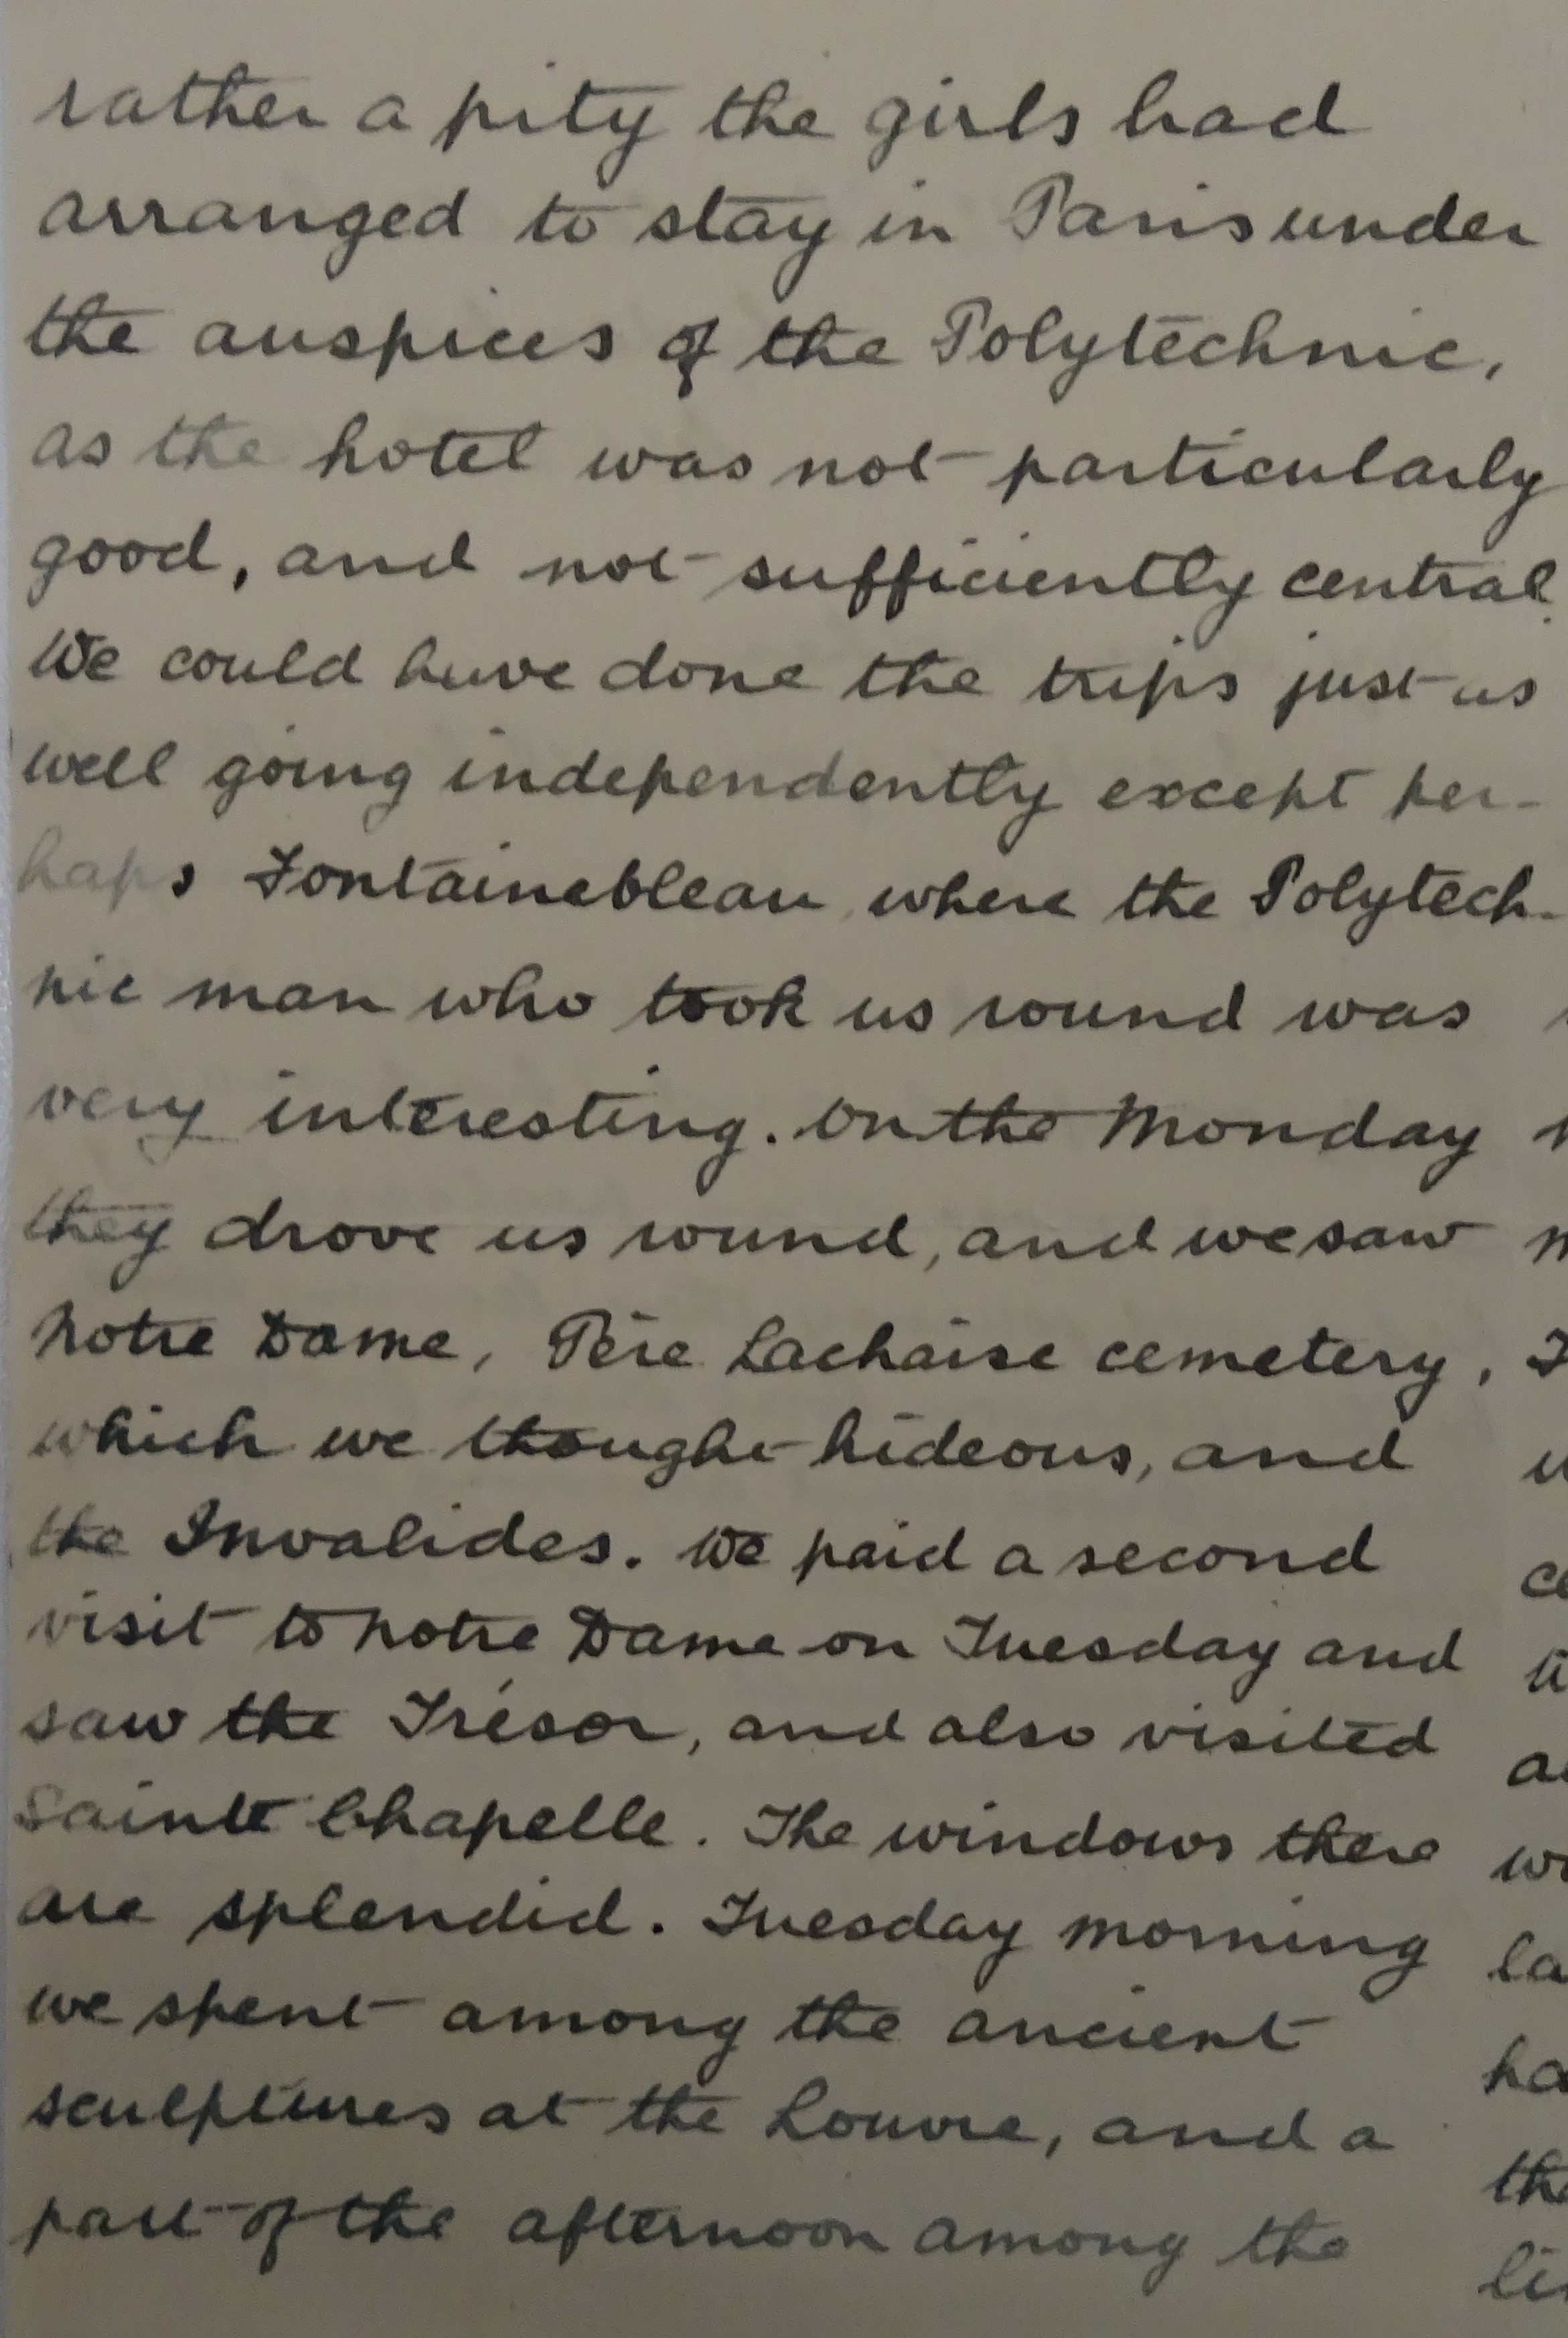 rather a pity the girls had
arranged to stay in Paris under
the auspices of the Polytechnic,
as the hotel was not particularly
good, and not sufficiently central.
We could have done the trips just as
well going independently except per-
haps Fontainebleau where the Polytech-
nic man who took us round was
very interesting. On the Monday
they drove us round, and we saw
Notre Dame, Père Lachaise cemetery,
which we thought hideous, and
the Invalides. We paid a second
visit to Notre Dame on Tuesday and
saw the Trésor, and also visited
Sainte Chapelle. The windows there
are splendid. Tuesday morning
we spent among the ancient
sculptures at the Louvre, and a
part of the afternoon among the